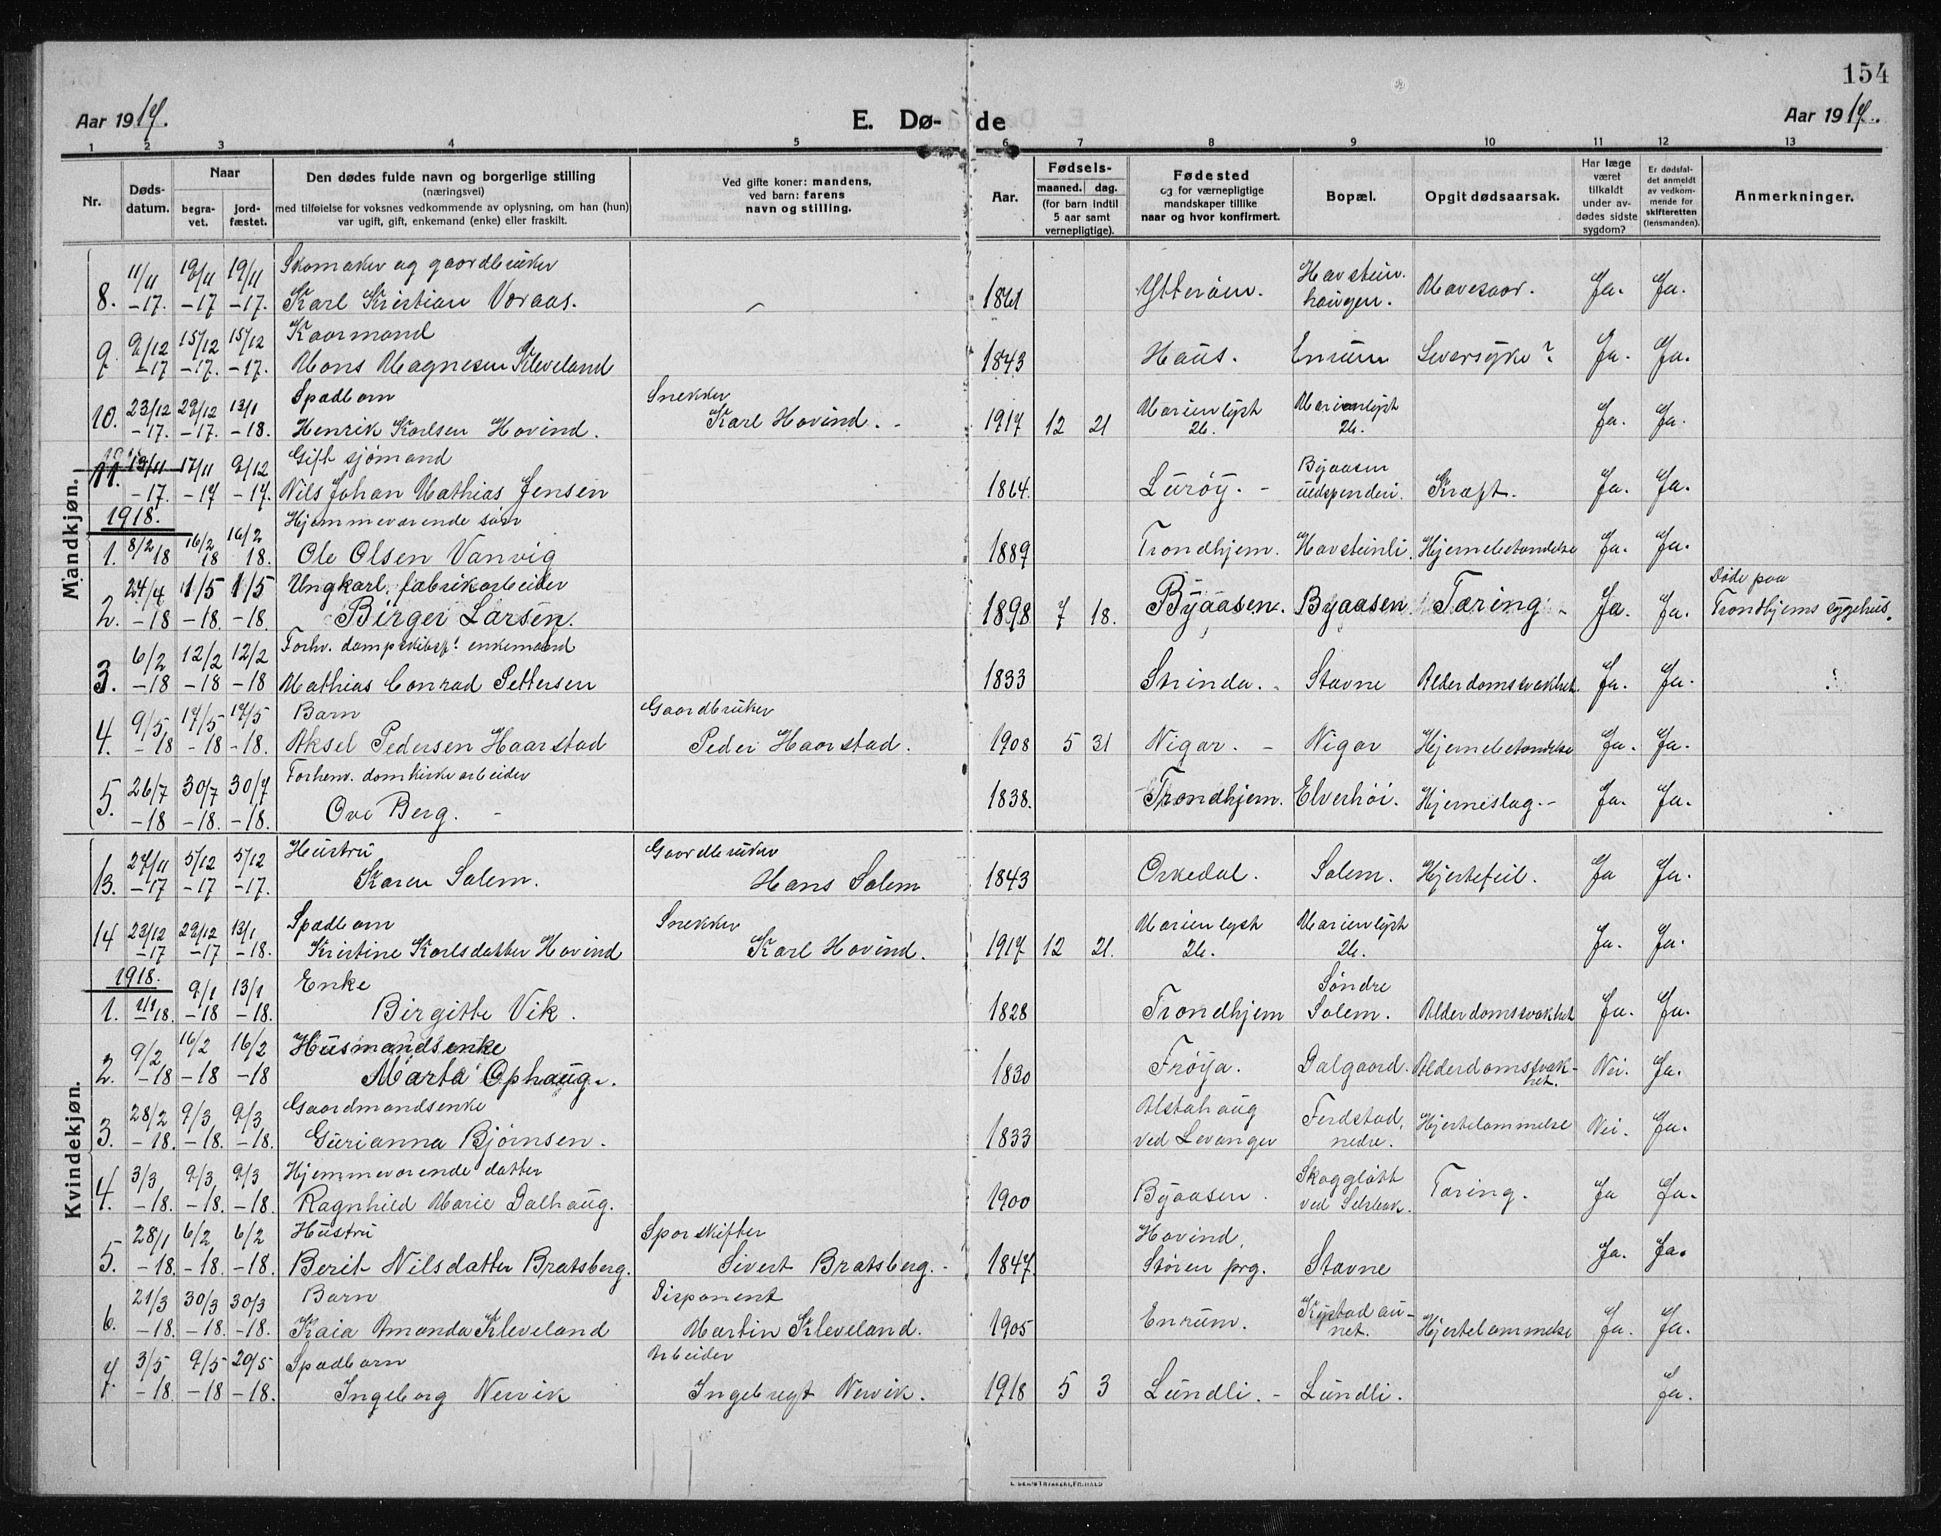 154
Aar 1917.
E. Dø-
de
Aar 1917.
1 2 3 4 5 6 7 8 9 10 11 12 13
Nr.
Døds-
datum.
Naar
begra-
vet.
jord-
fæstet.
Den dødes fulde navn og borgerlige stilling
(næringsvei)
med tilføielse for voksnes vedkommende av oplysning, om han (hun)
var ugift, gift, enkemand (enke) eller fraskilt.
Ved gifte koner: mandens,
ved barn: farens
navn og stilling.
Aar.
Fødsels-
maaned. dag.
(for barn indtil
5 aar samt
vernepligtige).
Fødested
og for værnepligtige
mandskaper tillike
naar og hvor konfirmert.
Bopæl.
Opgit dødsaarsak.
Har læge
været
tilkaldt
under av-
dødes sidste
sygdom?
Er dødsfal-
det anmeldt
av vedkom-
mende for
skifteretten
(lensmanden).
Anmerkninger.
Mandkjøn.
Skomaker og gaardbruker
8. 11/11 -17. 19/11 -17 19/11 -17. Karl Kristian Voraas. 1861 Ytterøen. Havstein-
haugen. Mavesaar. Ja. Ja.
Kaarmand
9. 9/12 -17 15/12 -17. 15/12 -17. Mons Magnesen Kleveland 1843 Haus. Enrum Leversyke? Ja. Ja.
Spædbarn Snekker
10. 23/12 -17. 29/12 -17. 13/1 -18. Henrik Karlsen Hovind. Karl Hovind. 1917 12 21 Marienlyst
26. Marienlyst
26. Ja. Ja.
Gift sjømand
11. 13/11 -17. 17/11 -17 9/12 -17. Nils Johan Mathias Jensen 1864. Lurøy. Byaasen
Kræft. Ja. Ja.
1918.
Hjemmeværende søn
1. 8/2 18 16/2 18 16/2 18. Ole Olsen Vanvig 1889 Trondhjem. Havsteinli. Hjernebetændelse Ja. Ja.
Ungkarl, fabrikarbeider
2. 24/4 -18 1/5 -18. 1/5 -18. Birger Larsen. 1898 7 18. Byaasen. Byaasen Tæring Ja. Ja. Døde paa
Trondhjems sygehus.
Forhv. enkemand
3. 6/2 -18 12/2 -18 12/2 -18 Mathias Conrad Pettersen 1833 Strinda. Stavne Alderdomssvakhet. Ja. Ja.
Barn Gaardbruker
4. 9/5 -18 17/5 -18 17/5 -18. Aksel Pedersen Haarstad Peder Haarstad. 1908 5 31 Nigar. Nigar Hjernebetændelse Ja. Ja.
Forhenv. domkirkearbeider
5. 26/7 -18 30/7 -18. 30/7 -18. Ove Berg. 1838. Trondhjem. Elverhøi. Hjerneslag. Ja. Ja.
Kvindekjøn.
Hustru Gaardbruker
13. 27/11 -17 5/12 -17 5/12 -17. Karen Salem. Hans Salem 1843 Orkedal. Salem. Hjertefeil. Ja Ja.
Spædbarn Snekker
14 23/12 -17 29/12 -17 13/1 -18. Kristine Karlsdatter Hovind Karl Hovind. 1917 12 21. Marienlyst
26. Marienlyst
26. Ja. Ja.
1918.
Enke
1. 1/1 18. 9/1 -18 13/1 -18. Birgitte Vik. 1828 Trondhjem Søndre
Salem. Alderdomssvakhet Ja. Ja.
Husmandsenke
2. 9/2 -18 16/2 -18 16/2 -18 Marta Ophaug. 1830 Frøya. Dalgaard. Alderdomssvak-
het. Nei. Ja.
Gaardmandsenke
3. 28/2 -18. 9/3 -18. 9/3 -18. Gurianna Bjørnsen. 1833 Alstahaug
ved Levanger Ferdstad,
nedre. Hjertelammelse Nei. Ja.
Hjemmeværende datter
4. 3/3 -18. 9/3 -18. 9/3 -18. Ragnhild Marie Dalhaug. 1900 Byaasen. Skogglótt
ved Selsbak. Tæring. Ja Ja.
Hustru Sporskifter
5. 28/1 -18. 6/2 -18. 6/2 -18. Berit Nilsdatter Bratsberg. Sivert Bratsberg. 1847. Hovind,
Støren prg. Stavne Ja. Ja.
Barn Disponent
6. 21/3 -18. 30/3 -18. 30/3 -18. Kaia Amanda Kleveland Martin Kleveland. 1905 Enrum. Kystadau-
net. Hjertelammelse Ja. Ja.
Spædbarn Arbeider
7. 3/5 -18. 9/5 -18 20/5 -18. Ingeborg Nervik Ingebregt Nervik. 1918 5 3 Lundli. Lundli. Ja.